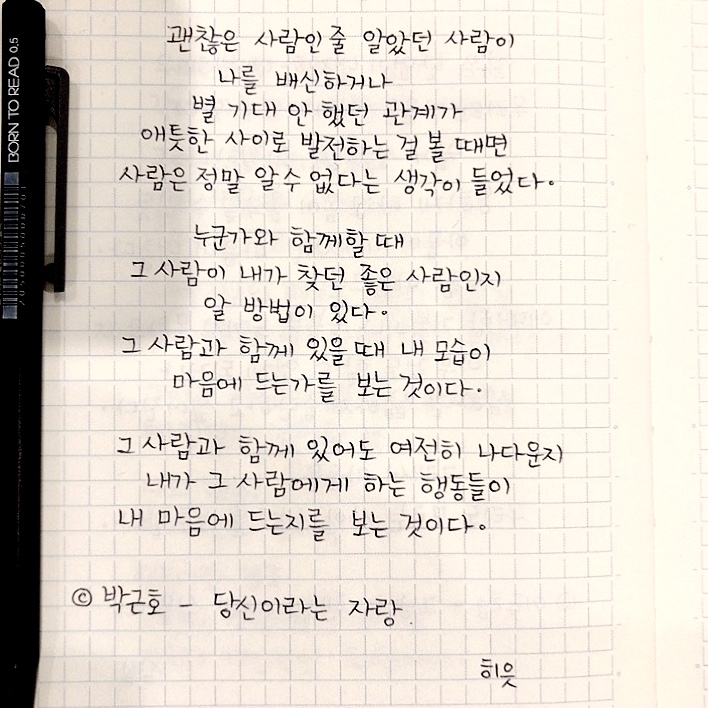 괜찮은 사람인 줄 알았던 사람이
나를 배신하거나
별 기대 안 했던 관계가
애틋한 사이로 발전하는 걸 볼 때면
사람은 정말 알 수 없다는 생각이 들었다.
누군가와 함께할 때
그 사람이 내가 찾던 좋은 사람인지
알 방법이 있다.
그 사람과 함께 있을 때 내 모습이
마음에 드는가를 보는 것이다.
그 사람과 함께 있어도 여전히 나다운지
내가 그 사람에게 하는 행동들이
내 마음에 드는지를 보는 것이다.
© 박근호 - 당신이라는 자랑
히읏
BORN TO READ 0.5